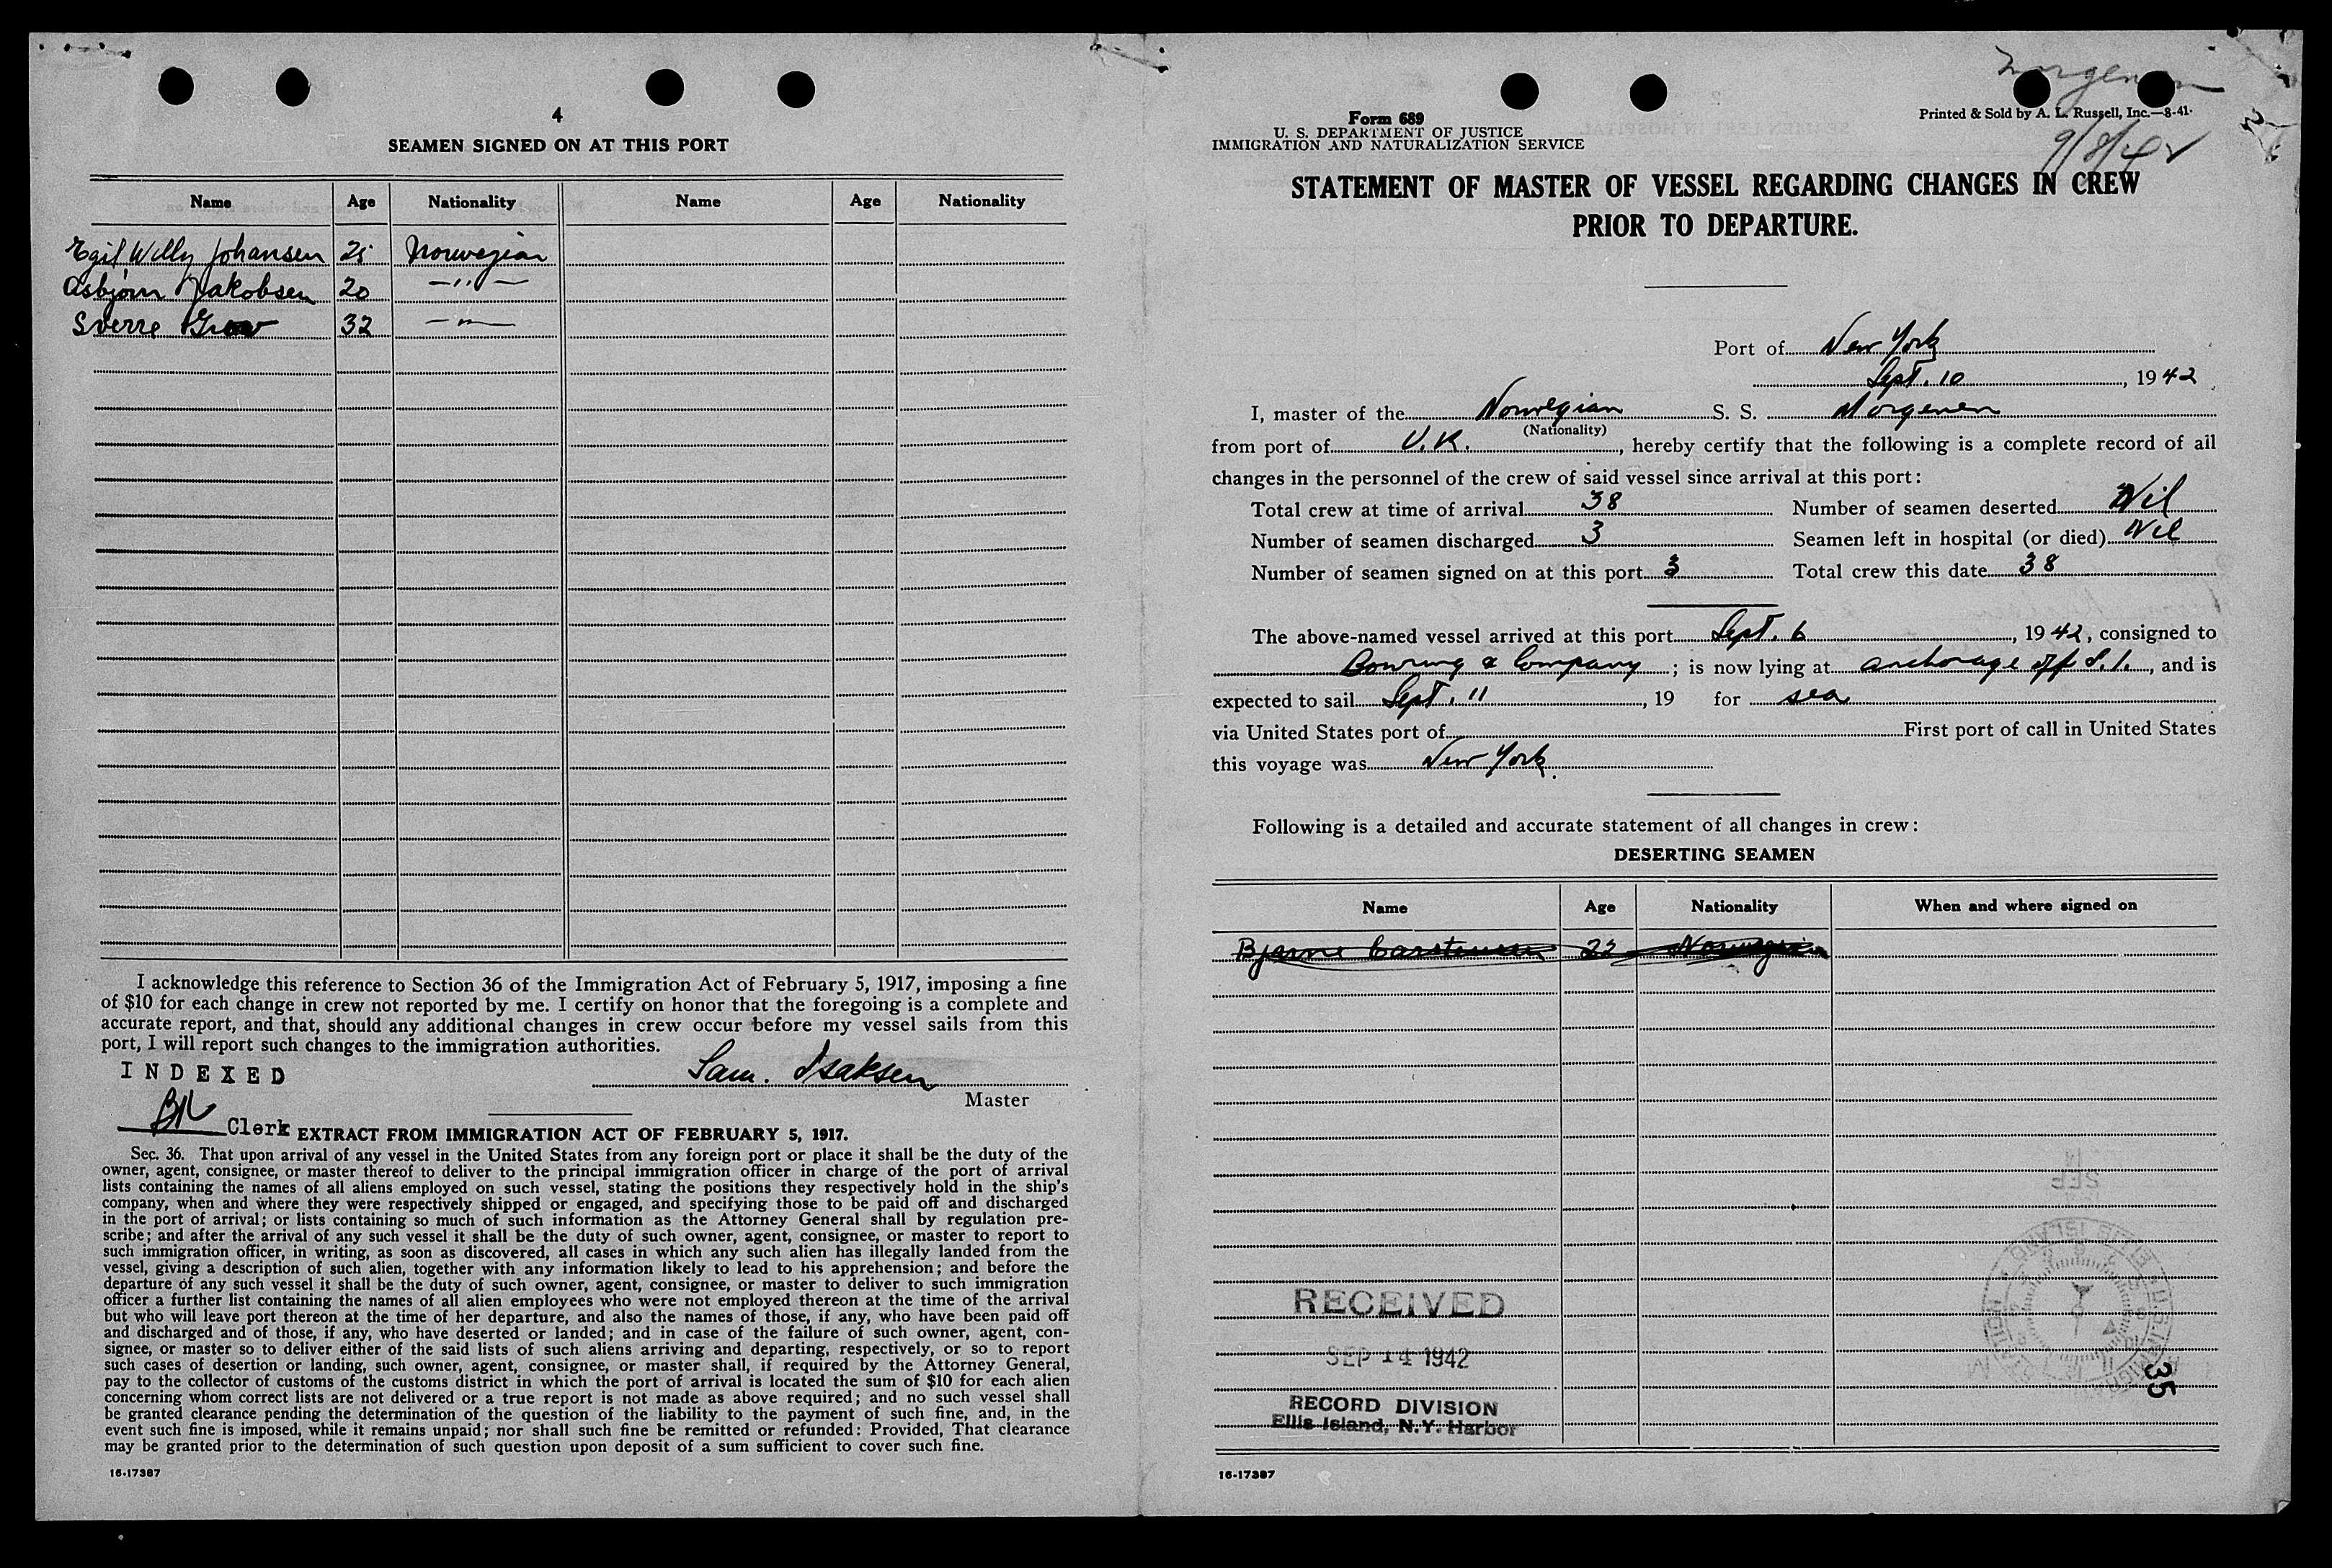 4
SEAMEN SIGNED ON AT THIS PORT
Name Age Nationality Name Age Nationality
Egil Willy Johansen 25 Norwegian
Asbjørn Jakobsen 20 —"—
Sverre 32 —"—
I acknowledge this reference to Section 36 of the Immigration Act of February 5, 1917, imposing a fine
of $10 for each change in crew not reported by me. I certify on honor that the foregoing is a complete and
accurate report, and that, should any additional changes in crew occur before my vessel sails from this
port, I will report such changes to the immigration authorities.
INDEXED
Sam. Isaksen
Master
Clerk
EXTRACT FROM IMMIGRATION ACT OF FEBRUARY 5, 1917.
Sec. 36. That upon arrival of any vessel in the United States from any foreign port or place it shall be the duty of the
owner, agent, consignee, or master thereof to deliver to the principal immigration officer in charge of the port of arrival
lists containing the names of all aliens employed on such vessel, stating the positions they respectively hold in the ship's
company, when and where they were respectively shipped or engaged, and specifying those to be paid off and discharged
in the port of arrival; or lists containing so much of such information as the Attorney General shall by regulation pre-
scribe; and after the arrival of any such vessel it shall be the duty of such owner, agent, consignee, or master to report to
such immigration officer, in writing, as soon as discovered, all cases in which any such alien has illegally landed from the
vessel, giving a description of such alien, together with any information likely to lead to his apprehension; and before the
departure of any such vessel it shall be the duty of such owner, agent, consignee, or master to deliver to such immigration
officer a further list containing the names of all alien employees who were not employed thereon at the time of the arrival
but who will leave port thereon at the time of her departure, and also the names of those, if any, who have been paid off
and discharged and of those, if any, who have deserted or landed; and in case of the failure of such owner, agent, con-
signee, or master so to deliver either of the said lists of such aliens arriving and departing, respectively, or so to report
such cases of desertion or landing, such owner, agent, consignee, or master shall, if required by the Attorney General,
pay to the collector of customs of the customs district in which the port of arrival is located the sum of $10 for each alien
concerning whom correct lists are not delivered or a true report is not made as above required; and no such vessel shall
be granted clearance pending the determination of the question of the liability to the payment of such fine, and, in the
event such fine is imposed, while it remains unpaid; nor shall such fine be remitted or refunded: Provided, That clearance
may be granted prior to the determination of such question upon deposit of a sum sufficient to cover such fine.
16-17387
Form 689
U. S. DEPARTMENT OF JUSTICE
IMMIGRATION AND NATURALIZATION SERVICE
Printed & Sold by A. L. Russell, Inc.—8-41.
9/8/42
STATEMENT OF MASTER OF VESSEL REGARDING CHANGES IN CREW
PRIOR TO DEPARTURE.
Port of New York
Sept. 10, 1942
I, master of the Norwegian S. S. Morgenen
(Nationality)
from port of U.K., hereby certify that the following is a complete record of all
changes in the personnel of the crew of said vessel since arrival at this port:
Total crew at time of arrival 38 Number of seamen deserted Nil
Number of seamen discharged 3 Seamen left in hospital (or died) Nil
Number of seamen signed on at this port 3 Total crew this date 38
The above-named vessel arrived at this port Sept. 6, 1942, consigned to
Bowring & Company; is now lying at anchorage off S. I., and is
expected to sail Sept. 11, 19 for sea
via United States port of First port of call in United States
this voyage was New York.
Following is a detailed and accurate statement of all changes in crew:
DESERTING SEAMEN
Name Age Nationality When and where signed on
Bjarne Carstensen 22 Norwegian
RECEIVED
SEP 14 1942
RECORD DIVISION
Ellis Island, N.Y. Harbor
35
16-17387